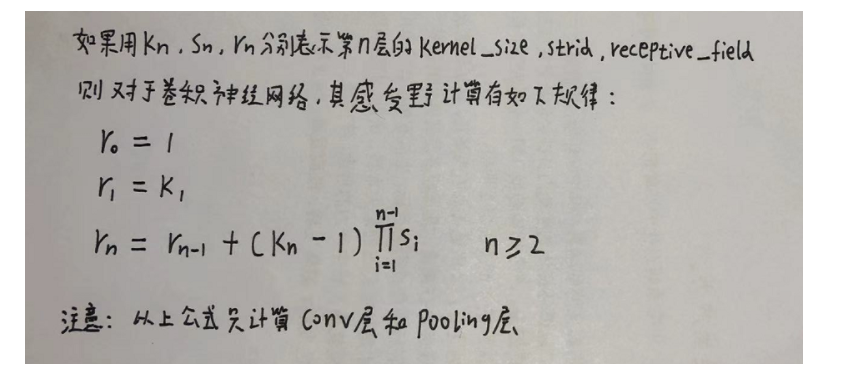 如果用Kn、Sn、rn分别表示第n层的Kernel_size,strid,receptive_field
则对于卷积神经网络,其感受野计算有如下规律:
r₀ = 1
r₁ = K₁
rn = rn-1 + (Kn - 1) ∏_{i=1}^{n-1} Si    n≥2
注意: 以上公式只计算Conv层和pooling层、